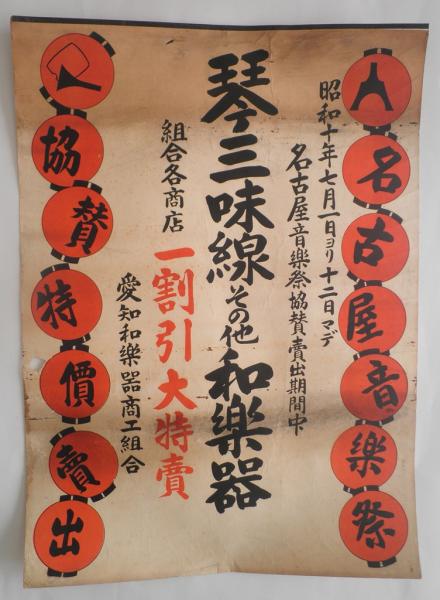 名古屋音樂祭
昭和十年七月一日ヨリ十二日マデ
名古屋音樂祭協賛賣出期間中
琴三味線その他和樂器
組合各商店
一割引大特賣
愛知和樂器商工組合
協賛特價賣出